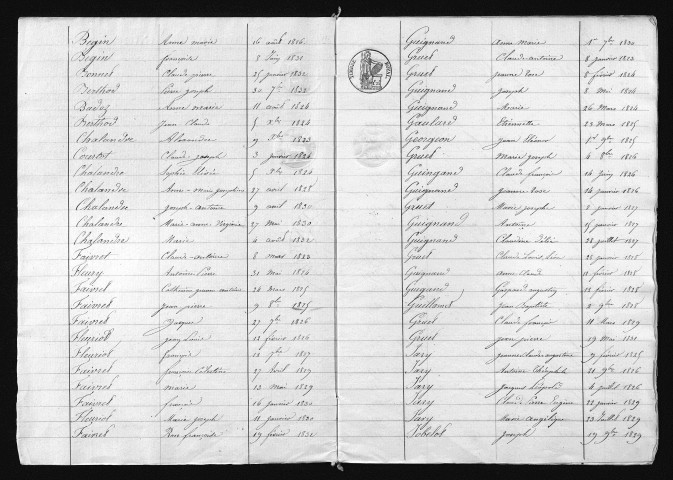 Begin Anne marie 16 août 1826
Begin françoise 5 Juin 1831
Bonnet Claude pierre 25 janvier 1832
Berthod Pierre joseph 30 7bre 1832
Badoz Anne marie 11 août 1824
Berthod Jean Claude 5 Xbre 1824
Chalandre Alexandre 9 Xbre 1823
Courtot Claude joseph 3 janvier 1824
Chalandre Sophie 5 1824
Chalandre Anne-marie josephine 27 avril 1828
Chalandre Joseph-antoine 9 avril 1830
Chalandre Marie-anne Virginie 27 Mai 1830
Chalandre Marie 4 août 1832
Faivret Claude-antoine 8 mars 1823
Fleury Antoine Pierre 31 Mai 1824
Faivret Catherine 24 mars 1825
Faivret Jean pierre 9 8bre 1825
Faivret Jacques 27 7bre 1826
Fleuriot 12 février 1826
Fleuriot françois 12 7bre 1827
Faivret 27 Avril 1829
Faivret marie 13 mai 1829
Faivret 16 janvier 1830
Fleuriot Marie joseph 11 janvier 1830
Faivret Rose françoise 17 février 1832
TIMBRE ROYAL
Guignard Anne Marie 1er 7bre 1820
Gruet Claude-antoine 8 janvier 1823
Gruet jeanne rose 5 février 1824
Guignard Joseph 8 Mai 1824
Guignard Marie 26 Mars 1824
Gaulard Etiennette 23 Mars 1825
Georgeon 1er 9bre 1825
Gruet Marie joseph 4 8bre 1826
Guingand Claude françois 14 Juin 1826
Guignard Jeanne rose 14 janvier 1826
Gruet Marie joseph 8 janvier 1827
Guignard Antoine 15 janvier 1827
Guignard Claudine 28 juillet 1827
Gruet Claude Louis 28 janvier 1828
Guignard Anne Claude 11 février 1828
Guignard 12 février 1828
Guillemet Jean Baptiste 2 9bre 1828
Gruet Claude françois 11 Mars 1829
Gruet Jean pierre 19 Mai 1831
Jary 9 février 1825
Jary Antoine Théophile 21 9bre 1826
Jary Jacques Léopold 4 juillet 1826
Jary Claude Pierre Eugène 22 janvier 1829
Jary Marie angélique 23 Juillet 1829
Jobelot Joseph 19 9bre 1829